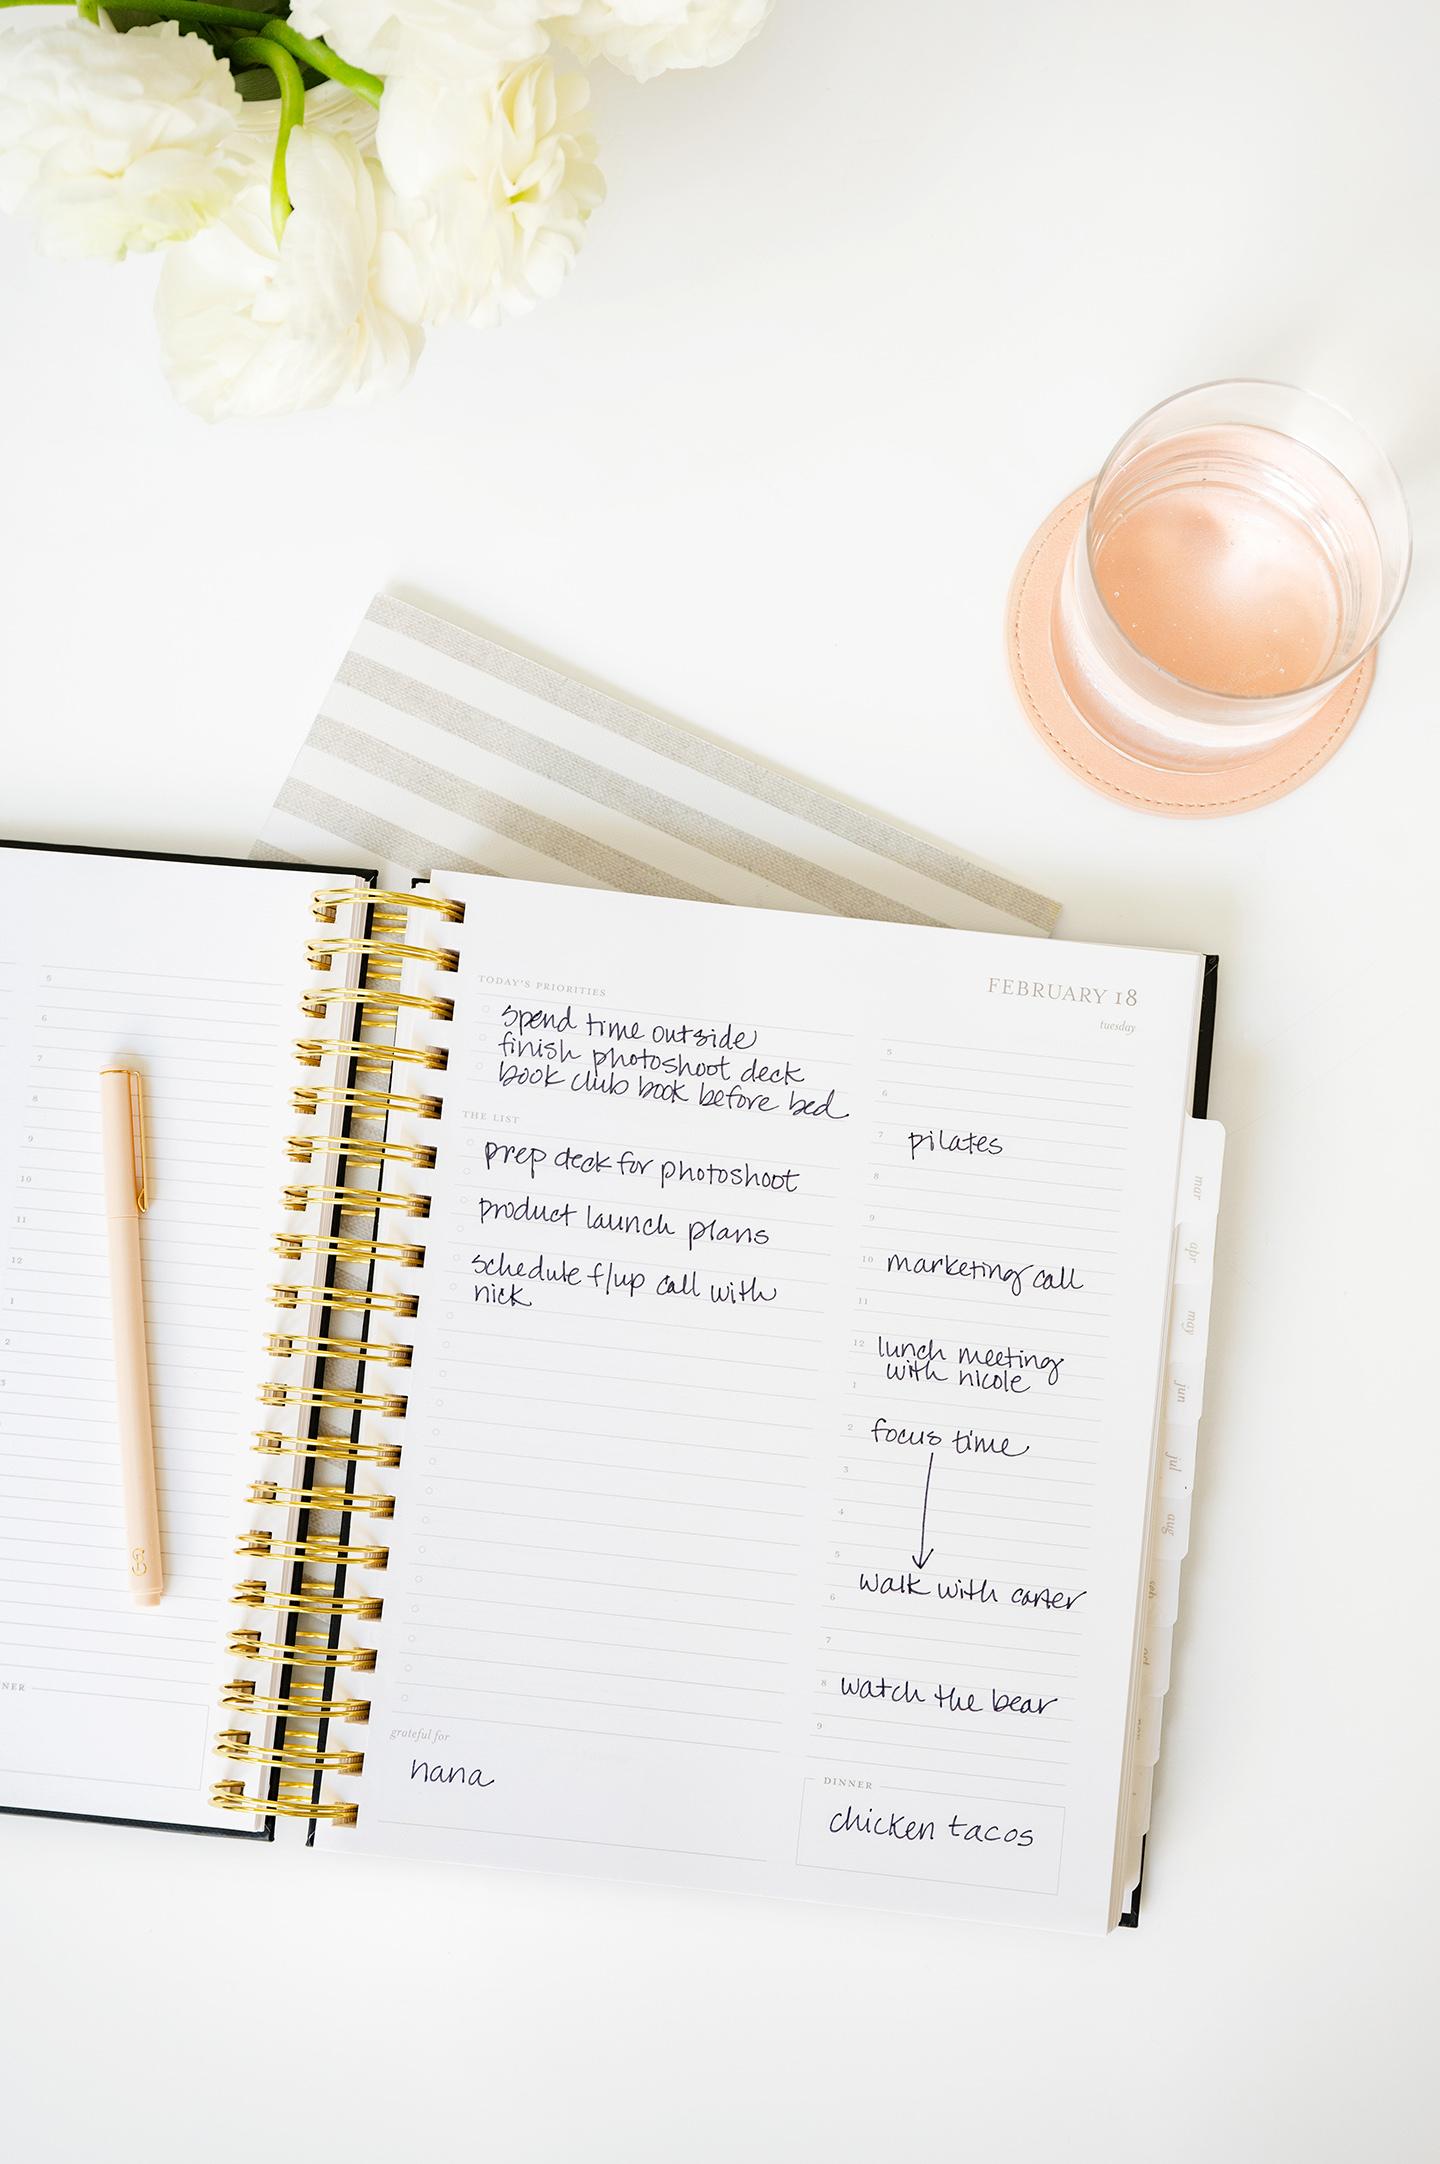 5
6
7
8
9
10
11
12
1
2
3
NER
TODAY'S PRIORITIES
spend time outside
finish photoshoot deck
book club book before bed
THE LIST
prep deck for photoshoot
product launch plans
schedule f/up call with
nick
grateful for
nana
FEBRUARY 18
tuesday
5
6
7 pilates
8
9
10 marketing call
11
12 lunch meeting
with nicole
1
2 focus time
3
4
5
walk with carter
6
7
8 watch the bear
9
DINNER
chicken tacos
mar
apr
may
jun
jul
aug
sep
oct
nov